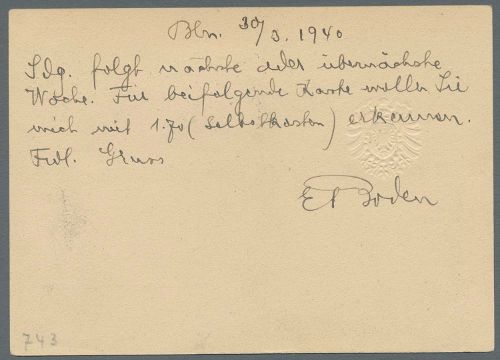 Bln. 30/3. 1940
Sdg. folgt nächste oder übernächste
Woche. Für beifolgende Karte wollen Sie
mich mit 1.70 (Selbstkosten) erkennen.
Frdl. Gruss
Boden
743